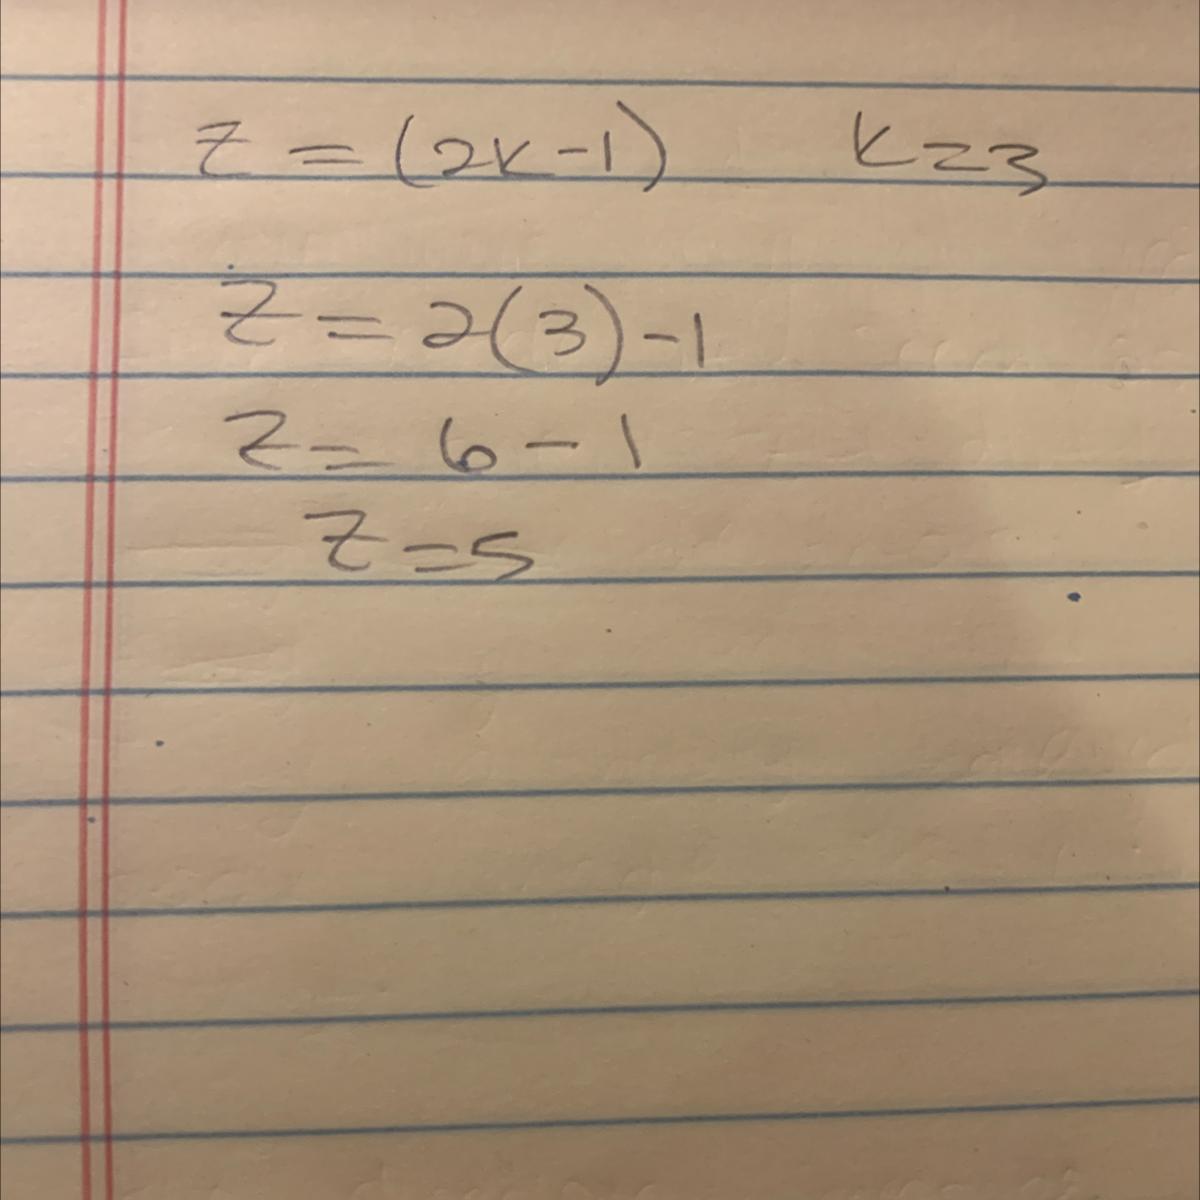 z = (2k-1) k=3
z = 2(3)-1
z = 6 - 1
z = 5